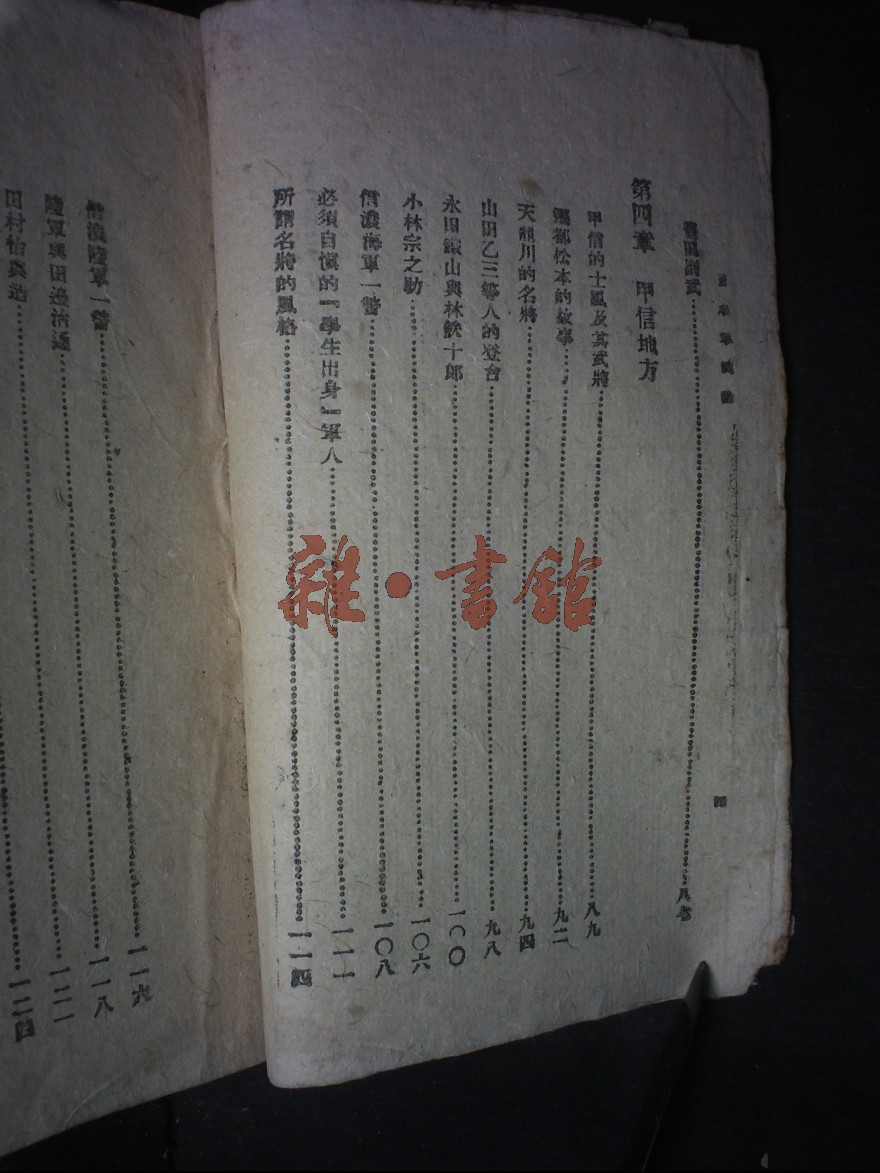 四
副武……八七
第四章 甲信地方
甲信的士風及其武將……八九
鄉都松本的故事……九二
天龍川的名將……九四
山田乙三等人的登台……九八
永田鐵山與林銑十郎……一〇〇
小林宗之助……一〇六
信濃海軍一瞥……一〇八
必須自愼的『學生出身』軍人……一一一
所謂名將的風格……一一四
一一六
信濃陸軍一瞥……一一八
陸軍與田邊治通……一二一
田村怡與造……一二四
雜·書館